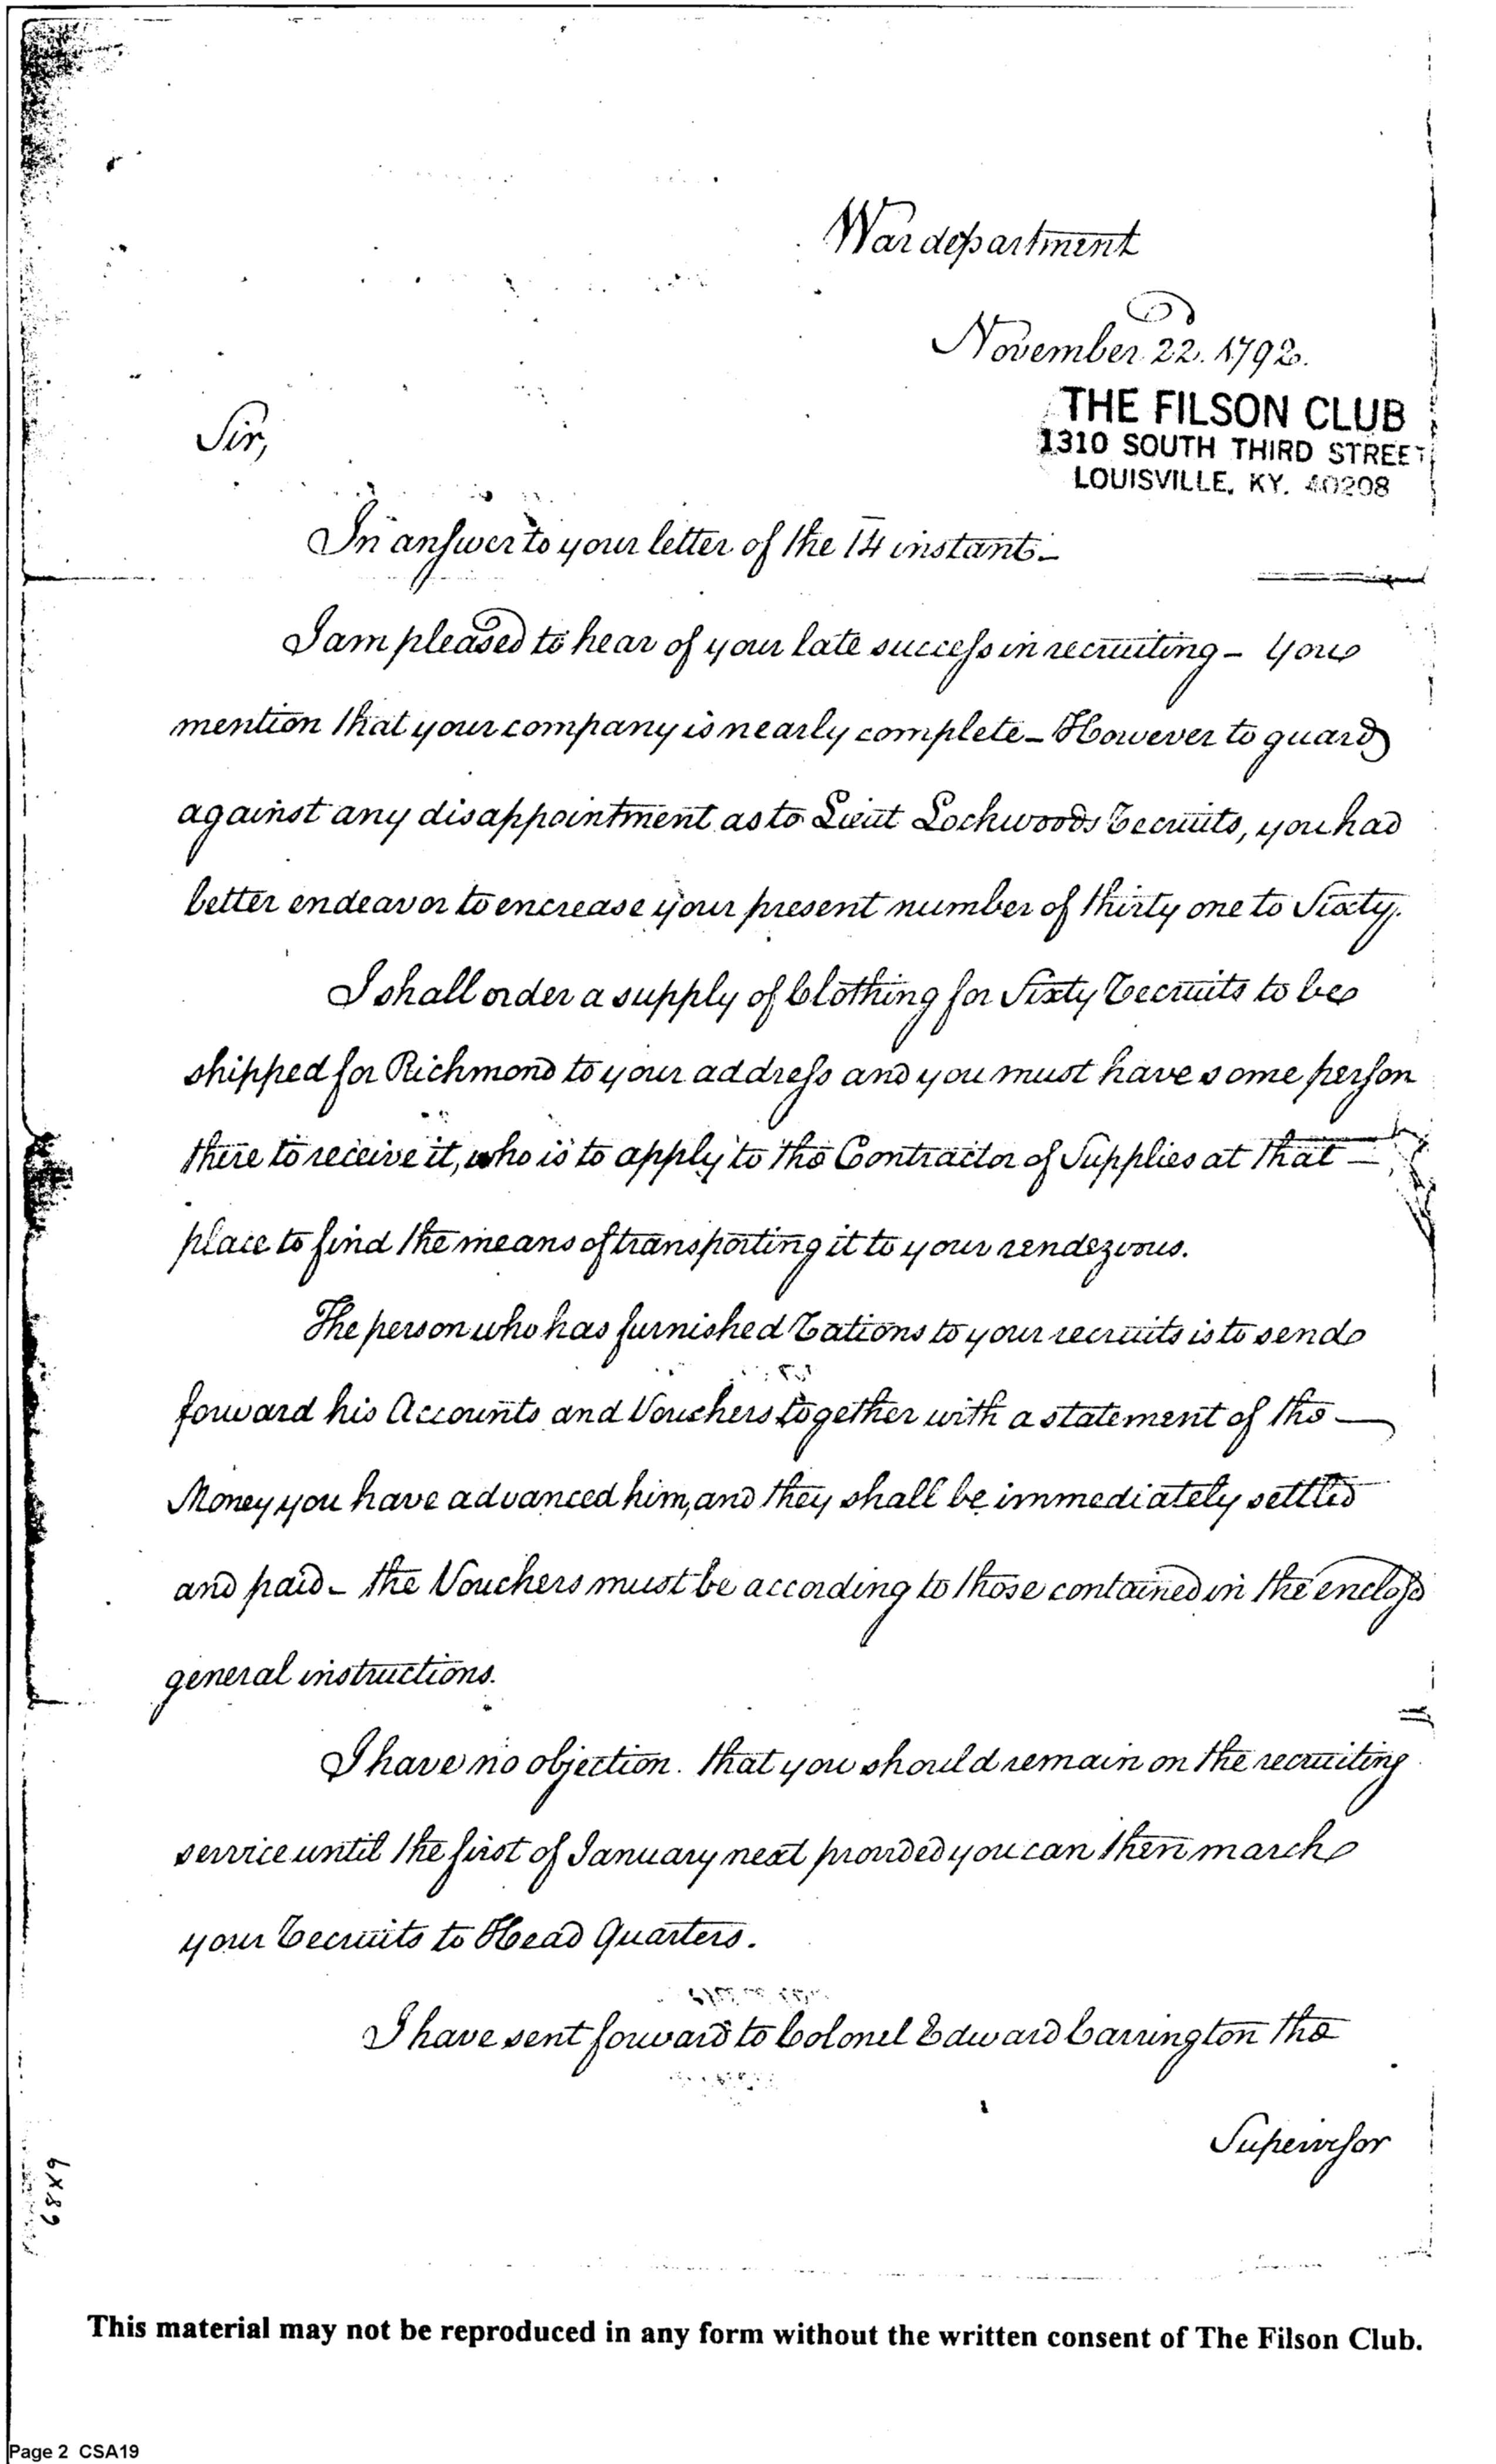 War department
November 22. 1792.
THE FILSON CLUB
1310 SOUTH THIRD STREET
LOUISVILLE, KY. 40208
Sir,
In answer to your letter of the 14 instant.
I am pleased to hear of your late success in recruiting - You
mention that your company is nearly complete - However to guard
against any disappointment as to Lieut Lockwoods Recruits, you had
better endeavor to encrease your present number of thirty one to Sixty.
I shall order a supply of Clothing for Sixty Recruits to be
shipped for Richmond to your address and you must have some person
there to receive it, who is to apply to the Contractor of Supplies at that -
place to find the means of transporting it to your rendezvous.
The person who has furnished Rations to your recruits is to send
forward his Accounts and Vouchers together with a statement of the -
Money you have advanced him, and they shall be immediately settled
and paid - the Vouchers must be according to those contained in the enclosd
general instructions.
I have no objection. that you should remain on the recruiting
service until the first of January next provided you can then march
your Recruits to Head Quarters.
I have sent forward to Colonel Edward Carrington the
Supervisor
6x89
This material may not be reproduced in any form without the written consent of The Filson Club.
Page 2 CSA19